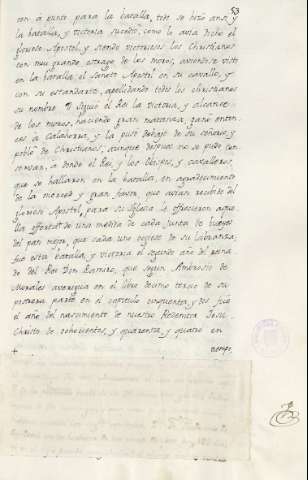 53
con á punto para la batalla, todo se hizo ansi, y
la batalla, y victoria sucedió, como le avia dicho el
glorioso Apostol, y siendo victoriosos los Christianos
con muy grande estrago de los moros, aviendose visto
en la batalla el sancto Apostol en su cavallo, y
con su estandarte, apellidando todos los christianos
su nombre Siguió el Rei la victoria, y alcance
de los moros, haciendo gran matanza, ganó enton
ces á Calahorra, y la puso debajo de su señorio, y
pobló de Christianos, aunque despues no se pudo con
servar, á donde el Rei, y los Obispos, y cavalleros,
que se hallaron en la batalla, en agradecimiento
de la merced y gran favor, que avian recibido del
glorioso Apostol, para su Iglesia le offrecieron aque
lla offrenda de una medida de cada junta de bueyes
del pan mejor, que cada uno cogiese de su labranza,
fue esta batalla, y victoria el segundo año del reina
do del Rei Don Ramiro, que segun Ambrosio de
Morales averigua en el libro decimo tercio de su
primera parte en el capitulo cinquenta, y dos fue
el año del nacimiento de nuestro Redentor Jesu
Christo de ochocientos, y quarenta, y quatro en
+ tiempo